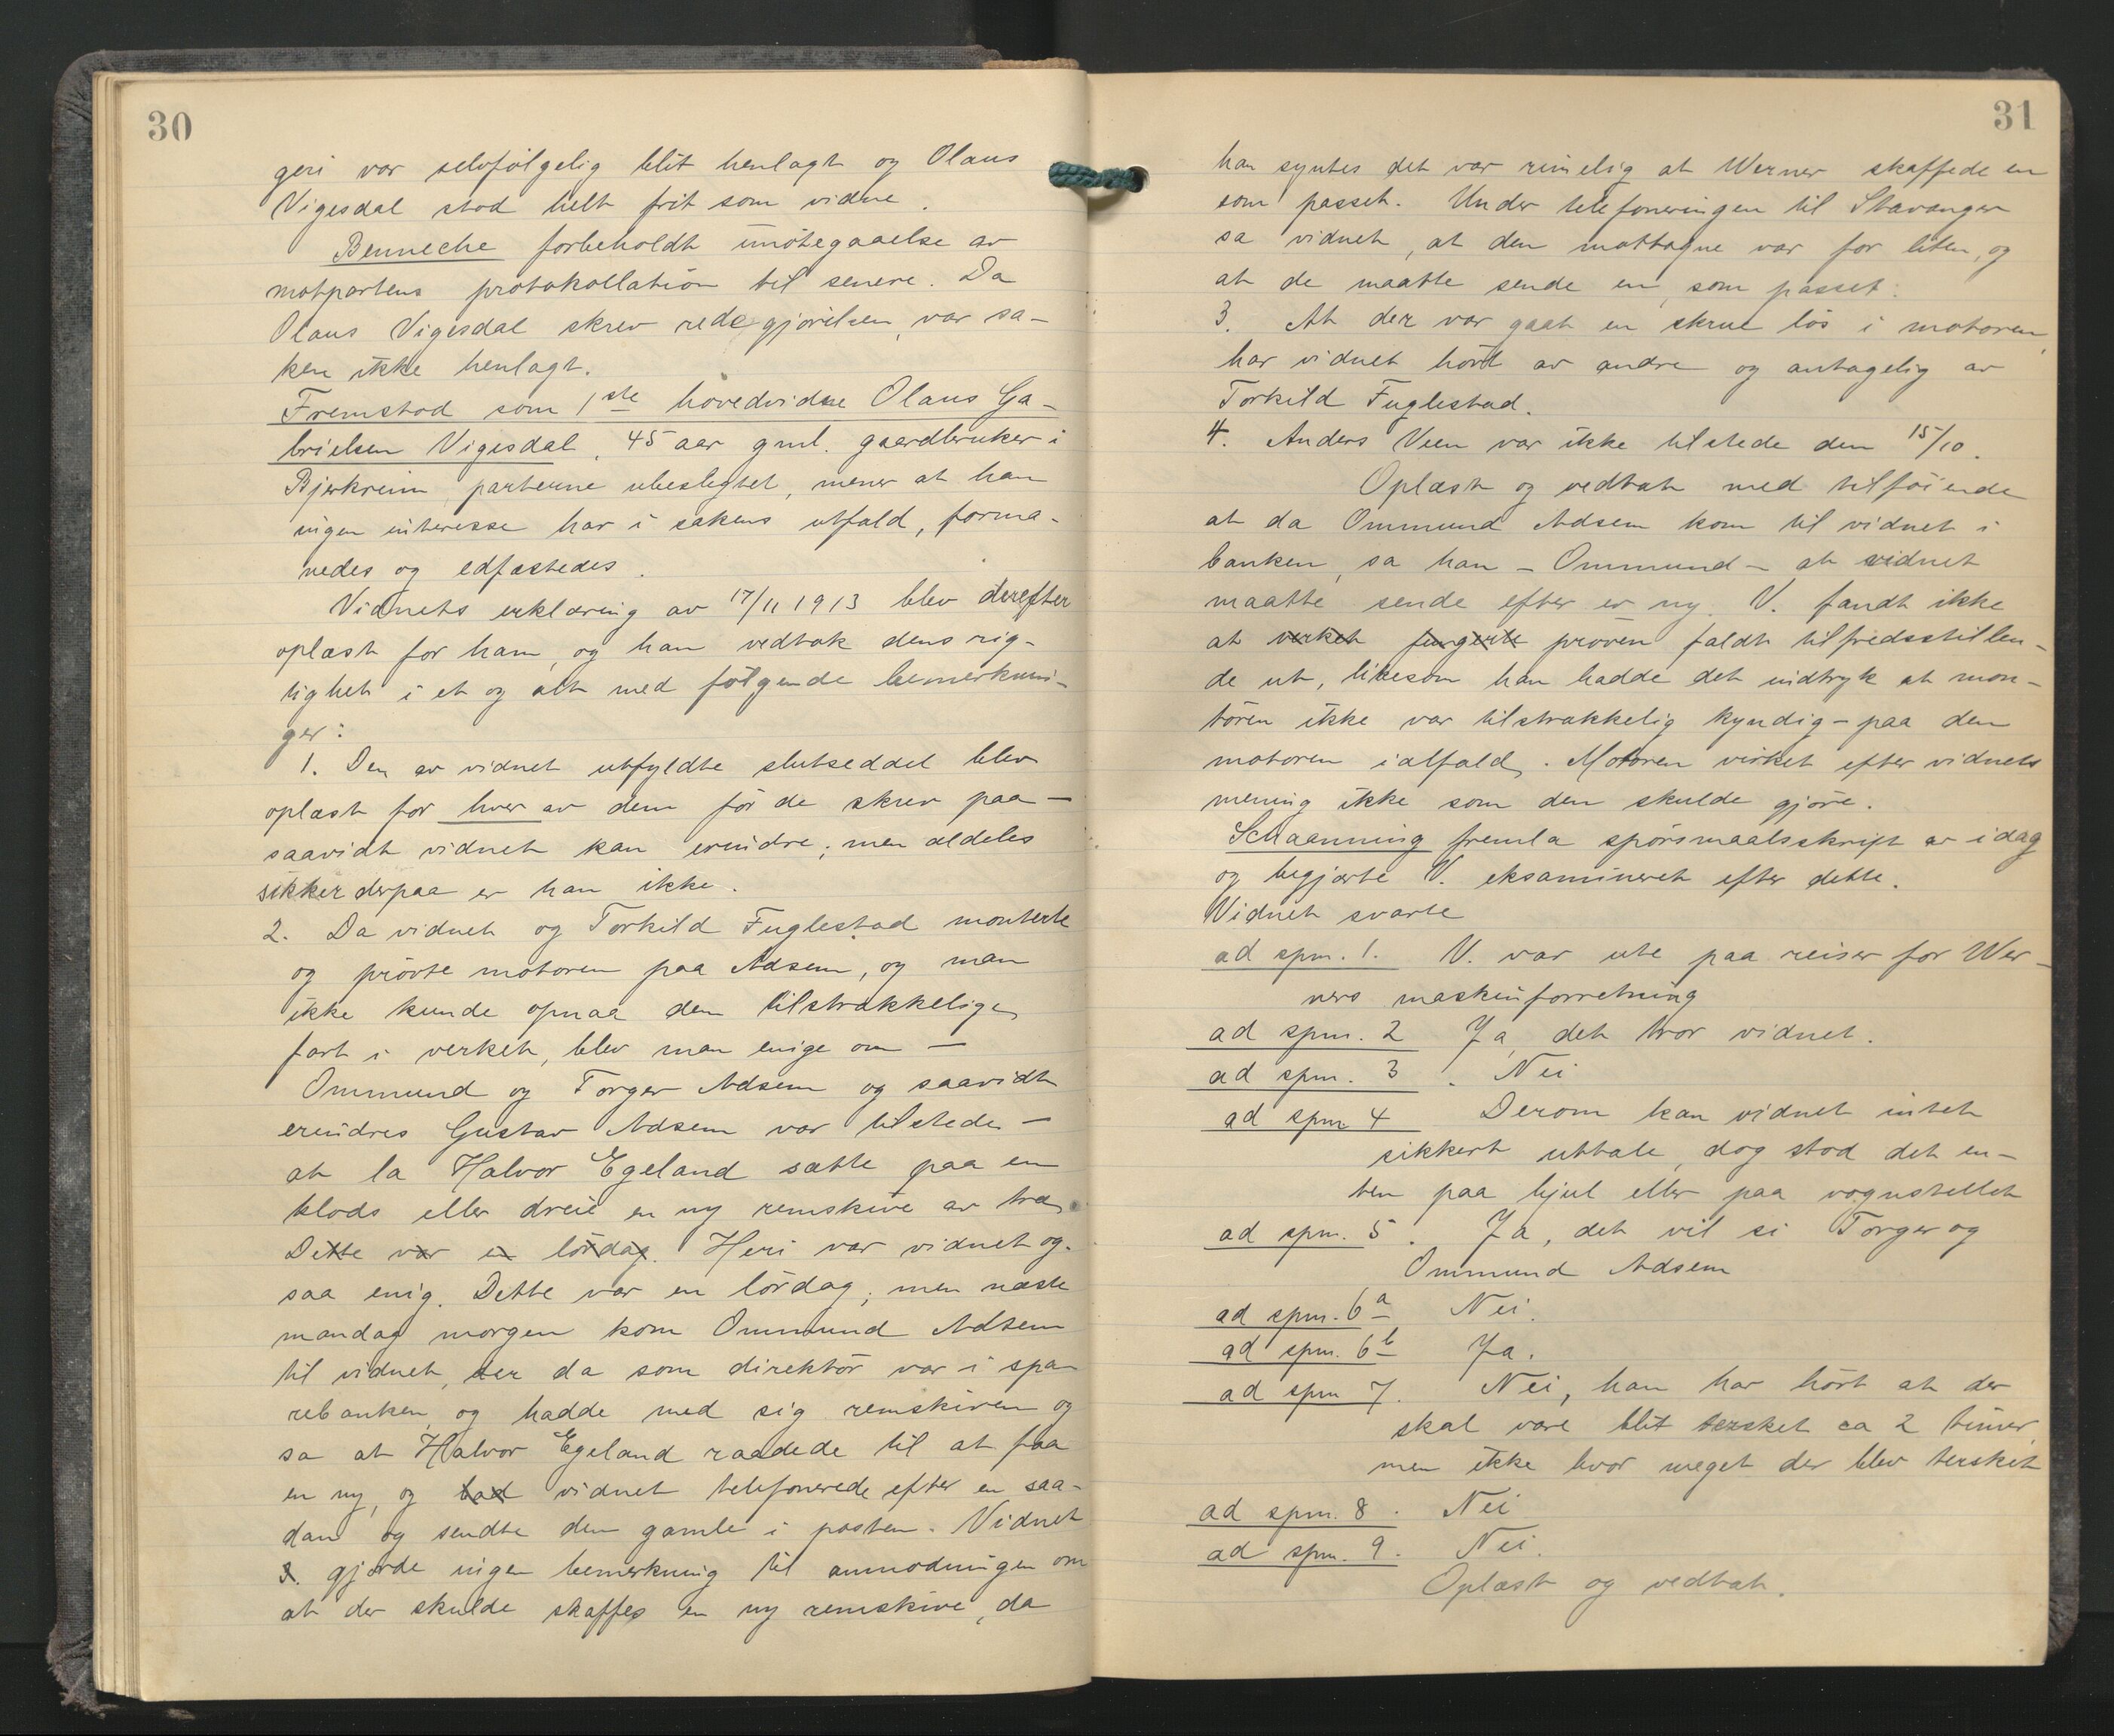 30
geri var selvfølgelig blit henlagt og Olaus
Vigesdal stod helt frit som vidne.
Benneche forbeholdt imøtegaaelse av
motpartens protokollation til senere. Da
Olaus Vigesdal skrev redegjørelsen, var sa-
ken ikke henlagt.
Fremstod som 1ste hovedvidne Olaus Ga-
brielsen Vigesdal, 45 aar gml. gaardbruker i
Bjerkreim, parterne ubeslegtet, mener at han
ingen interesse har i sakens utfald, forma-
nedes og edfæstedes.
Vidnets erklæring av 17/11 1913 blev derefter
oplæst for ham, og han vedtok dens rig-
tighet i et og alt med følgende bemerknin-
ger:
1. Den av vidnet utfyldte slutseddel blev
oplæst for hver av dem før de skrev paa -
saavidt vidnet kan erindre; men aldeles
sikker derpaa er han ikke.
2. Da vidnet og Torkild Fuglestad monterte
og prøvte motoren paa Adsem, og man
ikke kunde opnaa den tilstrækkelige
fart i verket, blev man enige om -
Ommund og Torger Adsem og saavidt
erindres Gustav Adsem var tilstede -
at la Halvor Egeland sætte paa en
klods eller dreie en ny remskive av træ.
Dette var en lørdag. Heri var vidnet og-
saa enig. Dette var en lørdag; men næste
mandag morgen kom Ommund Adsem
til vidnet, der da som direktør var i spa-
rebanken, og hadde med sig remskiven og
sa at Halvor Egeland raadede til at faa
en ny, og bad vidnet telefonerede efter en saa-
dan og sendte den gamle i posten. Vidnet
3. gjorde ingen bemerkning til anmodningen om
at der skulde skaffes en ny remskive, da
31
han syntes det var rimelig at Werner skaffede en
som passet. Under telefoneringen til Stavanger
sa vidnet, at den mottagne var for liten, og
at de maatte sende en, som passet.
3. At der var gaat en skrue løs i motoren,
har vidnet hørt av andre og antagelig av
Torkild Fuglestad.
4. Anders Veen var ikke tilstede den 15/10.
Oplæst og vedtat med tilføiende
at da Ommund Adsem kom til vidnet i
banken, sa han - Ommund - at vidnet
maatte sende efter en ny. V. fandt ikke
at verket fungerte prøven faldt tilfredsstillen-
de ut, likesom han hadde det indtryk at mon-
tøren ikke var tilstrækkelig kyndig - paa den
motoren ialfald. Motoren virket efter vidnets
mening ikke som den skulde gjøre.
Schaanning fremla spørsmaalsskrift av idag
og begjærte V. eksamineret efter dette.
Vidnet svarte
ad spm. 1. V. var ute paa reiser for Wer-
ners maskinforretning
ad spm. 2 Ja, det tror vidnet.
ad spm. 3. Nei
ad spm 4 Derom kan vidnet intet
sikkert uttale, dog stod det en-
ten paa hjul eller paa vognstellet
ad spm. 5. Ja, det vil si Torger og
Ommund Adsem
ad spm. 6a Nei.
ad spm. 6b Ja.
ad spm 7. Nei, han har hørt at der
skal være blit tersket ca 2 timer,
men ikke hvor meget der blev tersket
ad spm. 8. Nei
ad spm. 9. Nei.
Oplæst og vedtat.